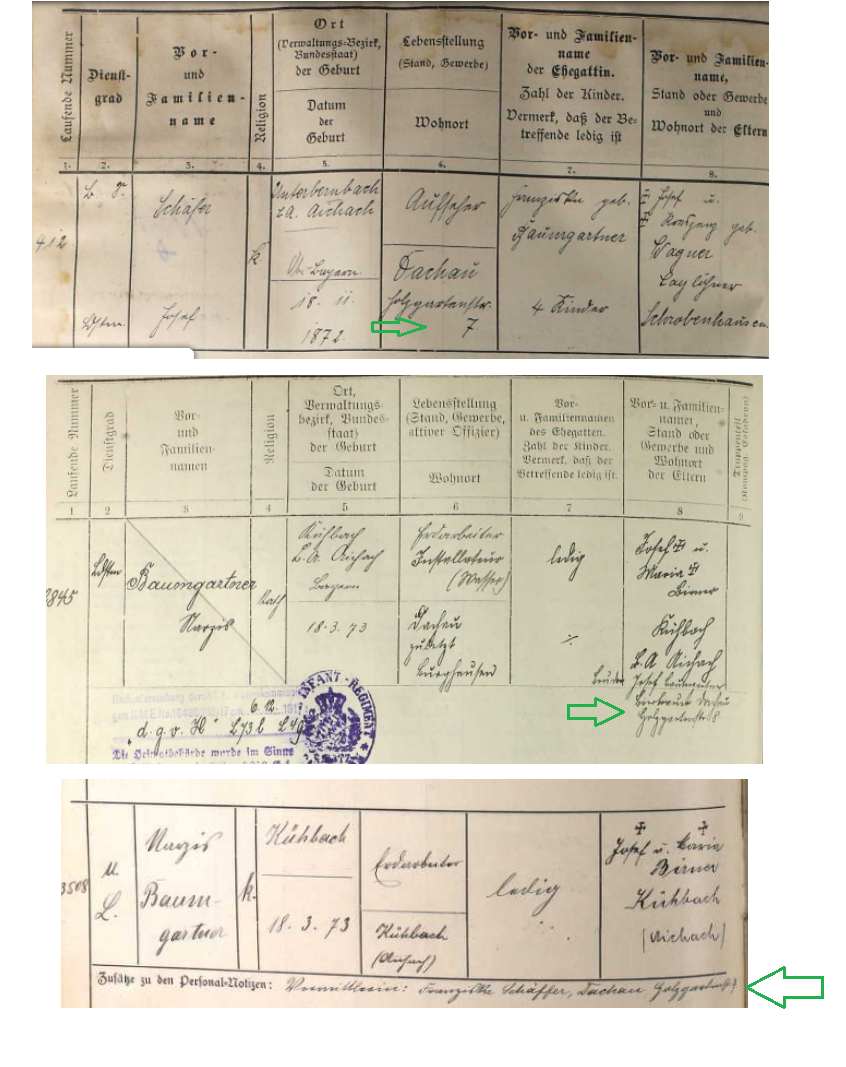 Laufende Nummer
Dienst-
grad
Vor-
und
Familien-
name
Religion
Ort
(Verwaltungs-Bezirk,
Bundesstaat)
der Geburt
Datum
der
Geburt
Lebensstellung
(Stand, Gewerbe)
Wohnort
Vor- und Familien-
name
der Ehegattin.
Zahl der Kinder.
Vermerk, daß der Be-
treffende ledig ist
Vor- und Familien-
name,
Stand oder Gewerbe
und
Wohnort der Eltern
1. 2. 3. 4. 5. 6. 7. 8.
412
Ldstm
Schäfer
Josef
k.
Unterbernbach
B.A. Aichach
Ob. Bayern.
18. 11.
1872.
Aufseher
Dachau
Holzgartenstr.
7.
Franziska geb.
Baumgartner
4 Kinder
Josef u.
Kreszenz geb.
Wagner
Taglöhner
Schrobenhausen.
Laufende Nummer
Dienstgrad
Vor-
und
Familien-
namen
Religion
Ort,
Verwaltungs-
bezirk, Bundes-
staat)
der Geburt
Datum
der Geburt
Lebensstellung
(Stand, Gewerbe,
aktiver Offizier)
Wohnort
Vor-
u. Familiennamen
des Ehegatten.
Zahl der Kinder.
Vermerk, daß der
Betreffende ledig ist.
Vor- u. Familien-
namen,
Stand oder
Gewerbe und
Wohnort
der Eltern
Truppenteil
(Kompag. Eskadron)
1 2 3 4 5 6 7 8 9
2845
Ldstm
Baumgartner
Narzis
Kath
Kühbach
B.A. Aichach
Bayern
18.3.73
Erdarbeiter
Installateur
(Wasser)
Dachau
zuletzt
Burghausen
ledig
Josef u.
Maria
Birner
Kühbach
B.A Aichach
Bruder Josef Baumgartner
Dachau
Holzgartenstr 8
6. 12.
"d. g. v. H"
INFANT-REGIMENT
Die Heimatbehörde werde im Sinne
3508
u
L.
Narzis
Baum-
gartner
k.
Kühbach
18. 3. 73
Erdarbeiter
Kühbach
(Aichach)
ledig
Josef u. Maria
Birner
Kühbach
(Aichach)
Zusätze zu den Personal-Notizen: Vermittlerin: Franziska Schäffer, Dachau Holzgartenstr 7